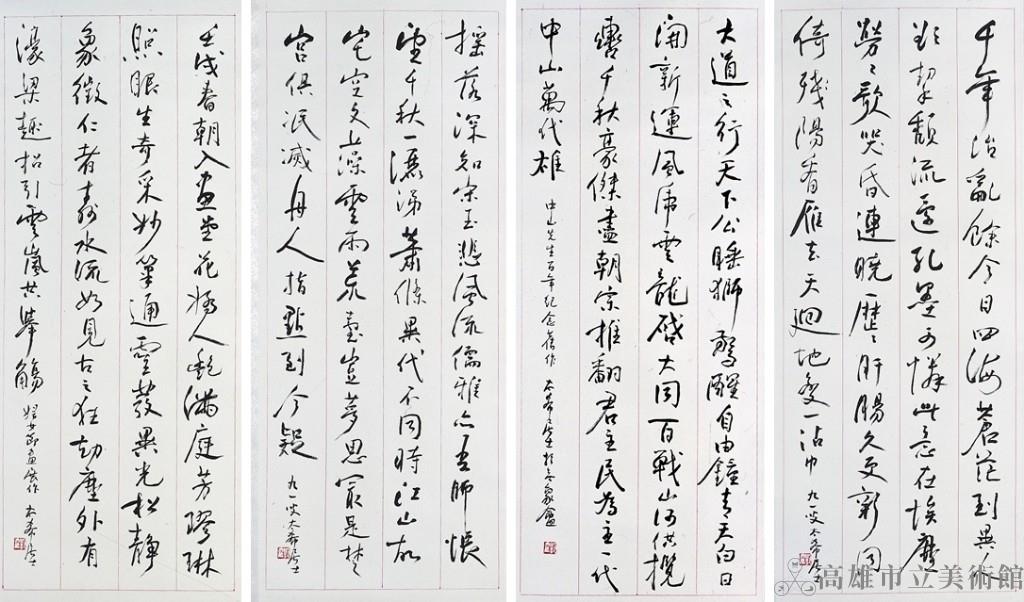 千年治亂餘今日四海蒼茫到異人
欲挈頹流還孔墨可憐此意在埃塵
勞勞歌哭昏連曉歷歷肝腸久更新同
倚殘陽看雁去天迴地變一沾巾 九一叟太希居士
大道之行天下公睡獅驚醒自由鐘青天白日
開新運風虎雲龍啟大同百戰山河供攬
轡千秋豪傑盡朝宗推翻君主民為主一代
中山萬代雄
中山先生百年紀念舊作 太希居士於象盦
搖落深知宋玉悲風流儒雅亦吾師悵
望千秋一灑涕蕭條異代不同時江山故
宅空文藻雲雨荒臺豈夢思最是楚
宮俱泯滅舟人指點到今疑 九一叟太希居士
壬戌春朝入畫堂花嬌人艷滿庭芳璆琳
照眼生奇采妙筆通靈發異光松靜
象徵仁者壽水流如見古之狂劫塵外有
濠梁趣招引雲嵐共舉觴 婦女節畫展作 太希居士
高雄市立美術館